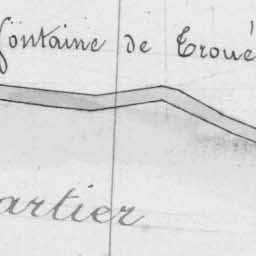 fontaine de Troué
artier